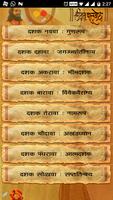 2:27
दशक नववा : गुणरूप
दशक दहावा : जगज्जोतीनाम
दशक अकरावा : भीमदशक
दशक बारावा : विवेकवैराग्य
दशक तेरावा : नामरूप
दशक चौदावा : अखंडध्यान
दशक पंधरावा : आत्मदशक
दशक सोळावा : सप्ततिन्वय